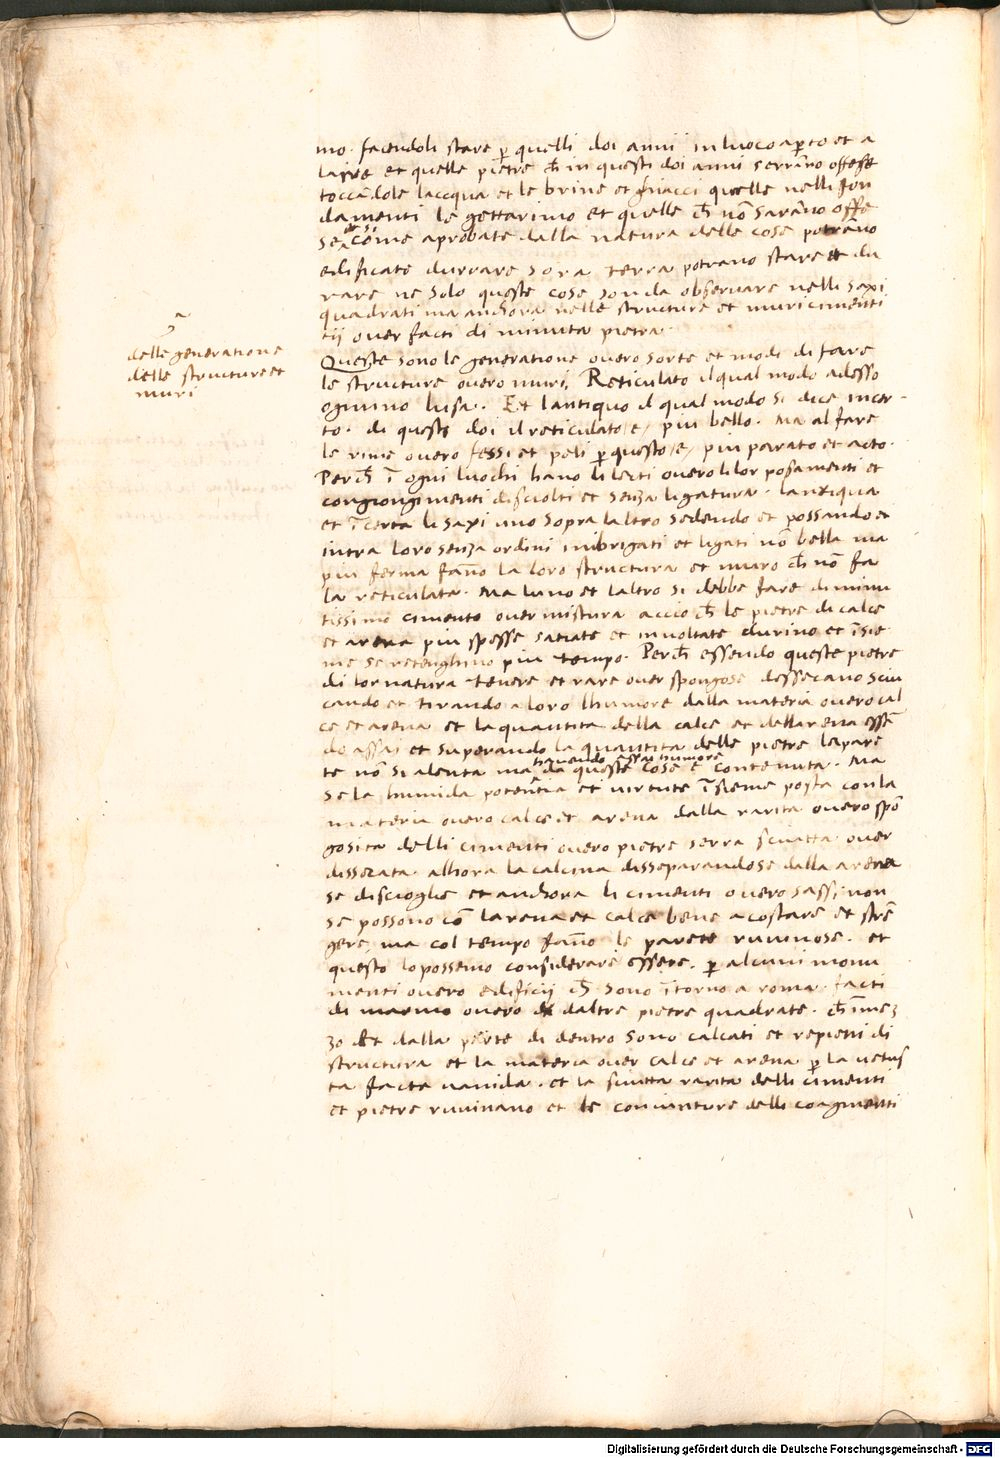 mo. facendoli stare p quelli doi anni in luoco apto et a
laire et quelle pietre ch in questi doi anni serrāno offese
toccādole laccqua et le brine et ghiacci quelle nelli fon
damenti le gettarimo et quelle ch nō sarāno offe
se come aprobate dalla natura delle cose potrāno
edificate durrare sora terra potrano stare et du
rare ne solo queste cose son da observare nelli saxi
quadrati ma anchora nelle structure et muri cimenti
tii over facti di minuta pietra.
3ª
delle generatione
delle structure et
muri
Queste sono le generatione overo sorte et modi di fare
le structure overo muri, Reticulato il qual modo adesso
ogniuno lusa. Et lantiquo il qual modo si dice incer-
to. di questi doi il reticulato /e/ piu bello. Ma al fare
le rime overo fessi et peli p questo /e/ piu parato et acto.
Perch ī ogni luochi hano li lecti overo li lor posamenti et
congiongimenti disciolti et senza ligatura. Lantiqua
et īcerta li saxi uno sopra laltro sedendo et possando et
intra loro senza ordini imbrigati et ligati nō bella ma
piu ferma fāno la loro structura et muro ch nō fa
la reticulata. Ma luno et laltro si debbe fare di minu
tissimo cimento over mistura accio ch le pietre di calce
et arena piu spesse satiate et involtate durino et īsie
me se retenghino piu tempo. Perch essendo queste pietre
di lor natura tenere et rare over spongose dessecano sciu
cando et tirando a loro lhumore dalla materia overo cal
ce et arena et la quantita della calce et dellarena essē
do assai et superando la quantita delle pietre le pare
te nō si alenta ma havendo assai humore da queste cose e contenuta. Ma
se la humida potentia et virtute īsieme posta con la
materia overo calce et arena dalla rarita overo spō
gosita delli cimenti overo pietre serra sciutta over
disseccata. alhora la calcina disseparandose dalla arena
se discioglie et anchora li cimenti overo sassi non
se possono cō larena et calce bene acostare et strē
gere, ma col tempo fāno le parete ruvinose. et
questo lo possemo considerare essere. p alcuni monu
menti overo edificii ch sono ītorno a roma. facti
di marmo overo daltre pietre quadrate. ch īmez
zo et dalla parte di dentro sono calcati et repieni di
structura et la materia over calce et arena p la vetus
ta facta vanida. et la sciutta rarita delli cimenti
et pietre ruvinano et le coniunture delli coagmenti
Digitalisierung gefördert durch die Deutsche Forschungsgemeinschaft - DFG